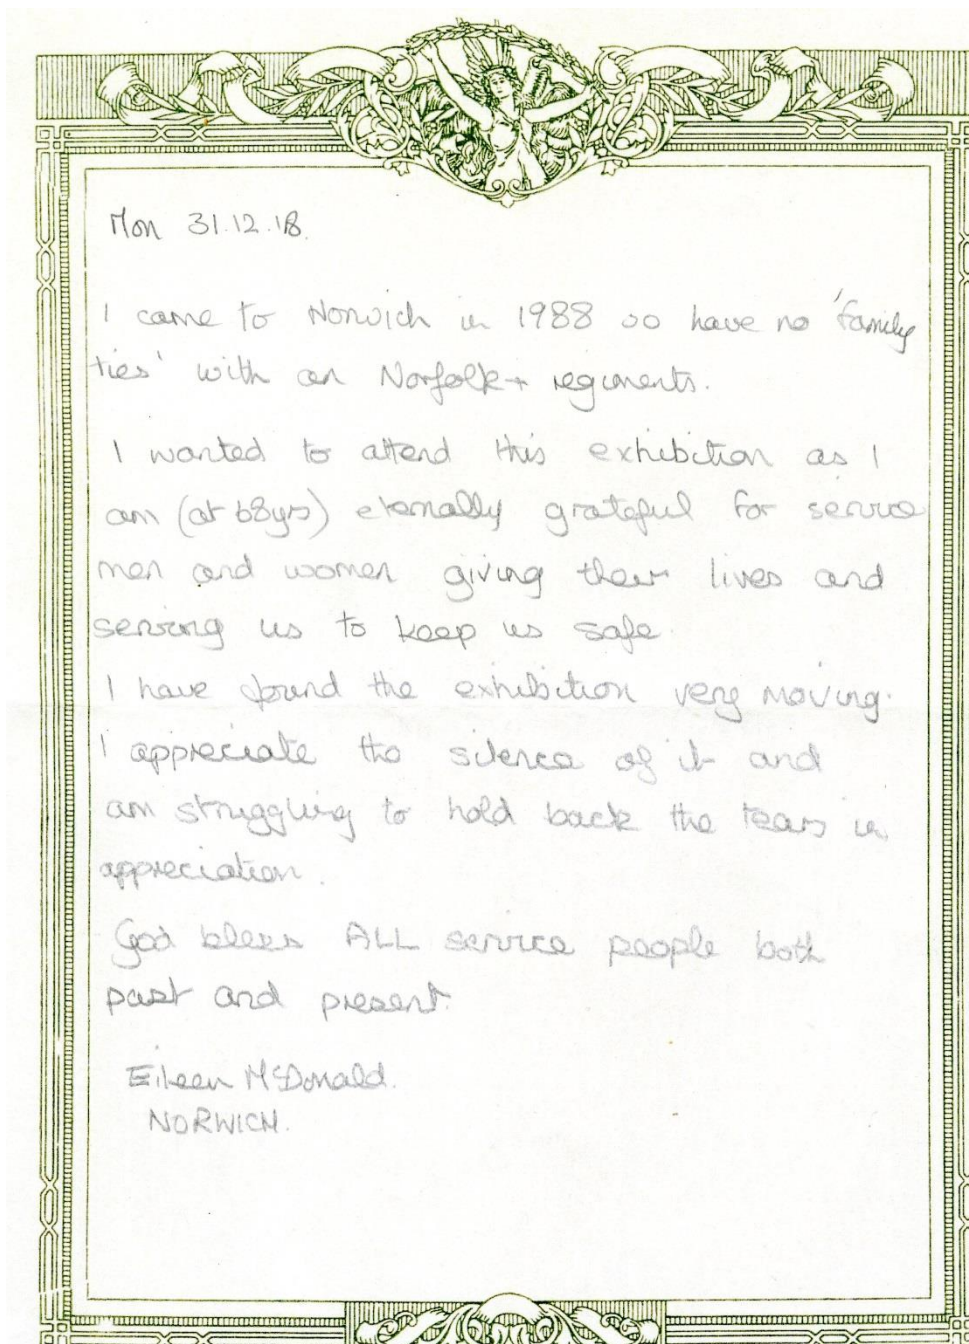 Mon 31.12.18.
I came to Norwich in 1988 so have no 'family
ties' with an Norfolk + regiments.
I wanted to attend this exhibition as I
am (at 68yrs) eternally grateful for service
men and women giving their lives and
serving us to keep us safe.
I have found the exhibition very moving.
I appreciate the silence of it and
am struggling to hold back the tears in
appreciation.
God bless ALL service people both
past and present.
Eileen McDonald.
NORWICH.